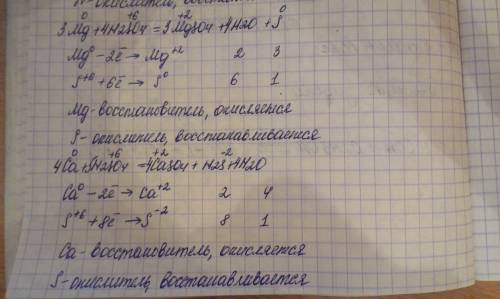 окислитель, восстан
0 +6 +2 0
3Mg + 4H2SO4 = 3MgSO4 + 4H2O + S
Mg⁰ - 2ē → Mg⁺² 2 3
S⁺⁶ + 6ē → S⁰ 6 1
Mg - восстановитель, окисляется
S - окислитель, восстанавливается
0 +6 +2 -2
4Ca + 5H2SO4 = 4CaSO4 + H2S + 4H2O
Ca⁰ - 2ē → Ca⁺² 2 4
S⁺⁶ + 8ē → S⁻² 8 1
Ca - восстановитель, окисляется
S - окислитель, восстанавливается